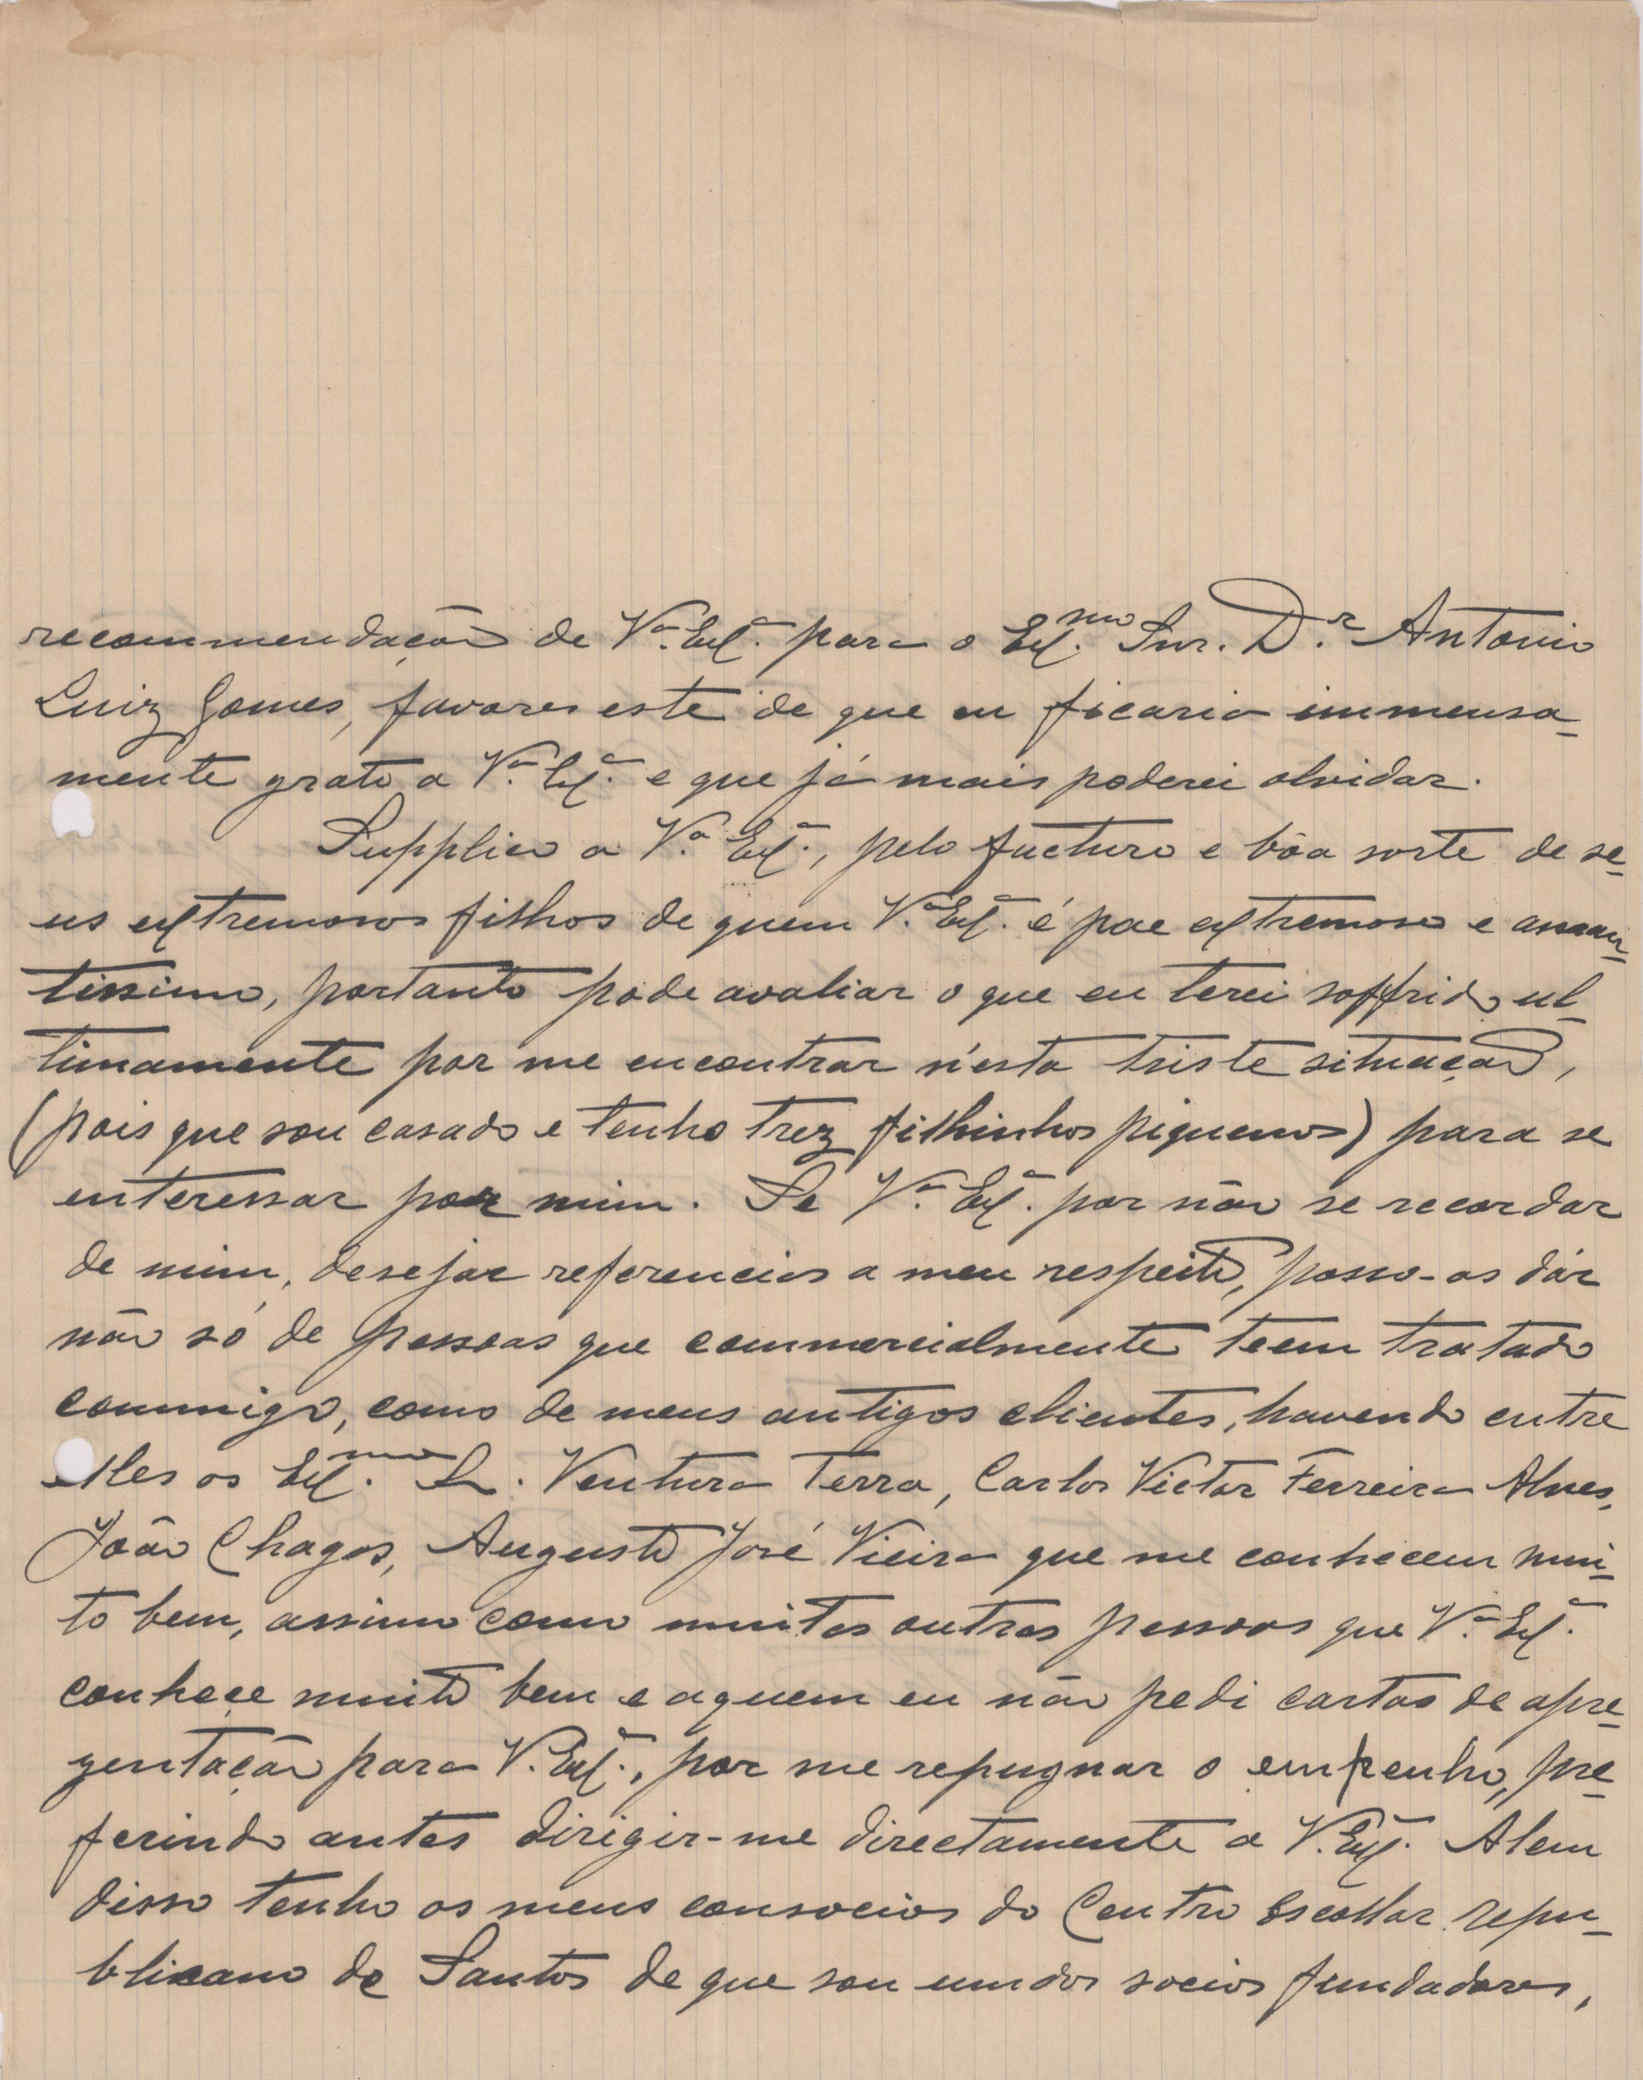 recommendação de V.ª Ex.ª para o Ex.mo Snr. D.r Antonio
Luiz Gomes, favores este de que eu ficaria immensa-
mente grato a V.ª Ex.ª e que já mais poderei olvidar.
Supplico a V.ª Ex.ª, pelo fucturo e bôa sorte de se-
us extremosos filhos de quem V.ª Ex.ª é pae extremoso e aman-
tissimo, portanto pode avaliar o que eu terei soffrido ul-
timamente por me encontrar n'esta triste situação,
(pois que sou casado e tenho trez filhinhos piquenos) para se
enteressar por mim. Se V.ª Ex.ª por não se recordar
de mim, desejar referencias a meu respeito, posso-as dár
não só de pessoas que commercialmente teem tratado
commigo, como de meus antigos clientes, havendo entre
elles os Ex.mo S. Ventura Terra, Carlos Victor Ferreira Alves,
João Chagas, Augusto José Vieira que me conhecem mui-
to bem, assim como muitas outras pessoas que V.ª Ex.ª
conhece muito bem e aquem eu não pedi cartas de apre-
zentação para V. Ex.ª, por me repugnar o empenho, pre-
ferindo antes dirigir-me directamente a V. Ex.ª. Alem
disso tenho os meus consocios do Centro Escollar repu-
blicano de Santos de que sou um dos socios fundadores,